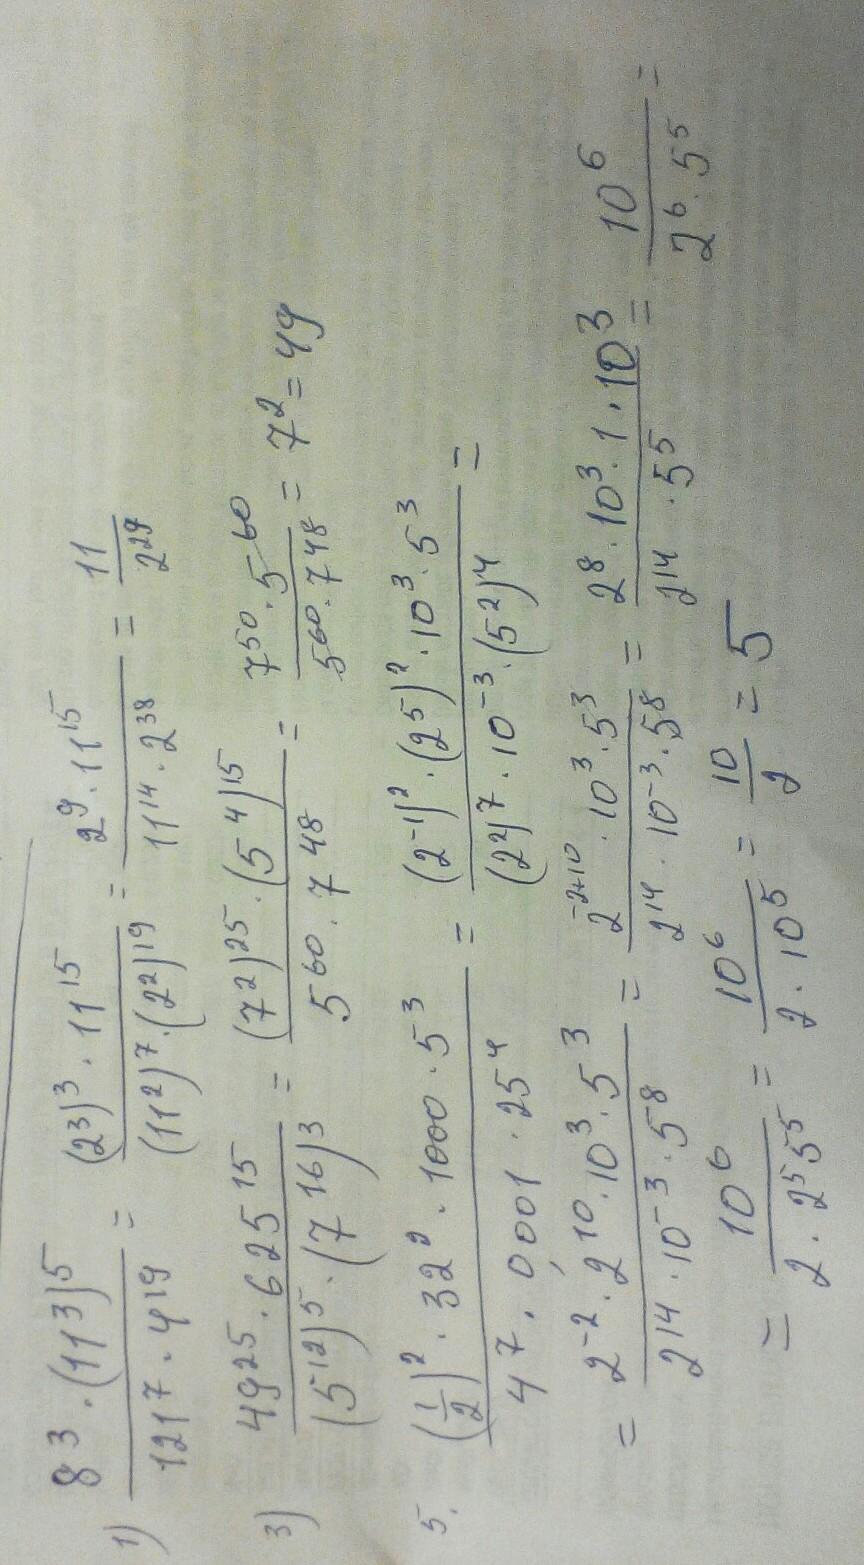 1) \frac{8^3 · (11^3)^5}{121^7 · 4^{19}} = \frac{(2^3)^3 · 11^{15}}{(11^2)^7 · (2^2)^{19}} = \frac{2^9 · 11^{15}}{11^{14} · 2^{38}} = \frac{11}{2^{29}}
3) \frac{49^{25} · 625^{15}}{(5^{12})^5 · (7^{16})^3} = \frac{(7^2)^{25} · (5^4)^{15}}{5^{60} · 7^{48}} = \frac{7^{50} · 5^{60}}{5^{60} · 7^{48}} = 7^2 = 49
5. \frac{(\frac{1}{2})^2 · 32^2 · 1000 · 5^3}{4^7 · 0,001 · 25^4} = \frac{(2^{-1})^2 · (2^5)^2 · 10^3 · 5^3}{(2^2)^7 · 10^{-3} · (5^2)^4} =
= \frac{2^{-2} · 2^{10} · 10^3 · 5^3}{2^{14} · 10^{-3} · 5^8} = \frac{2^{-2+10} · 10^3 · 5^3}{2^{14} · 10^{-3} · 5^8} = \frac{2^8 · 10^3 · 1 · 10^3}{2^{14} · 5^5} = \frac{10^6}{2^6 · 5^5} =
= \frac{10^6}{2 · 2^5 5^5} = \frac{10^6}{2 · 10^5} = \frac{10}{2} = 5